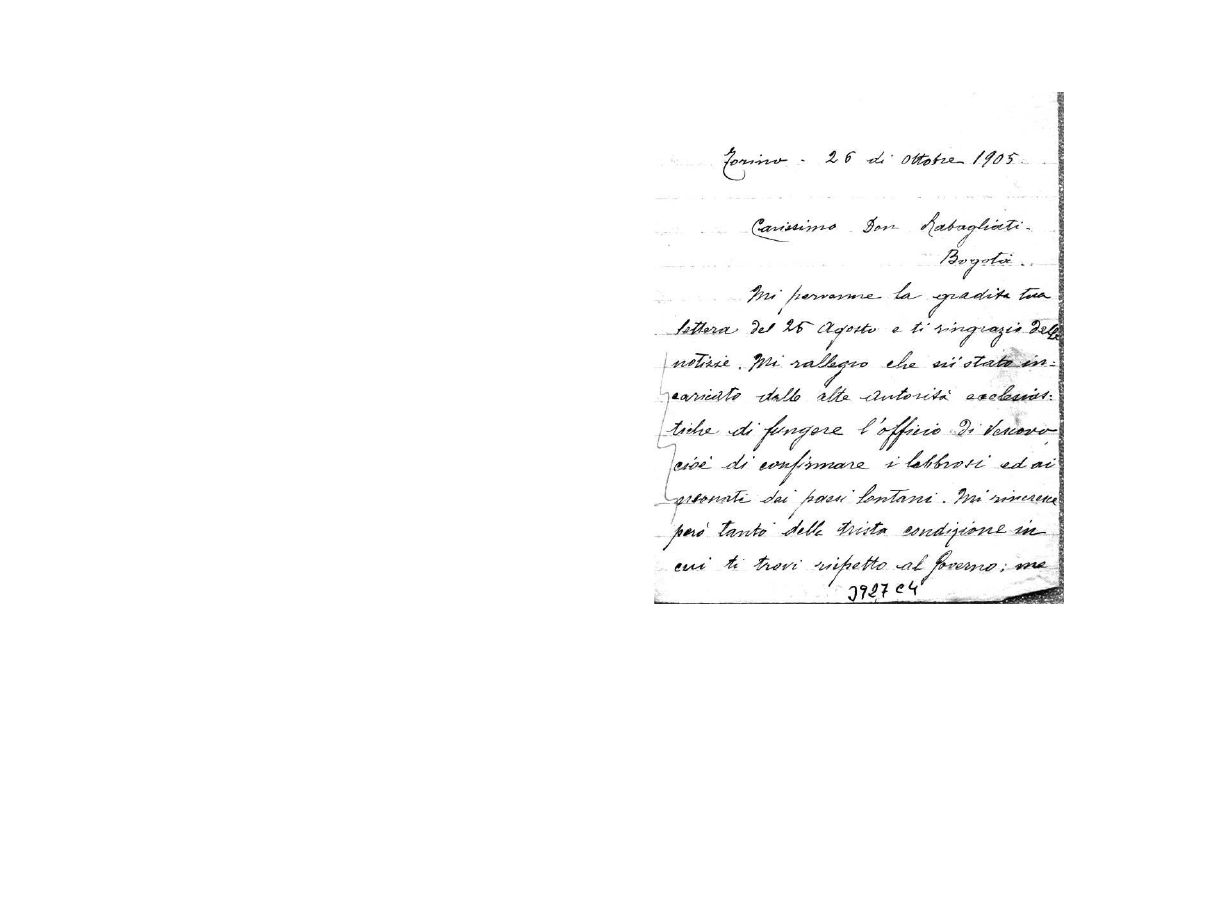 Torino - 26 di Ottobre 1905.
Carissimo Don Rabagliati.
Bogotà.
Mi pervenne la gradita tua
lettera del 25 Agosto e ti ringrazio delle
notizie. Mi rallegro che sii stato in=
caricato dalle alte autorità ecclesias:
tiche di fungere l'officio di Vescovo
cioè di confirmare i lebbrosi ed ai
neonati dai paesi lontani. Mi rincresce
però tanto della trista condizione in
cui ti trovi rispetto al Governo; me
3927 C4